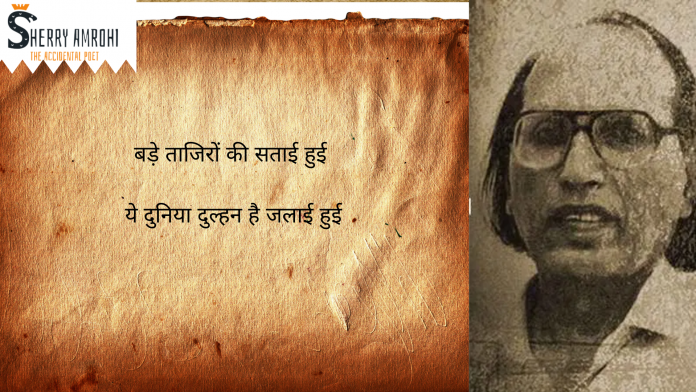 SHERRY AMROHI
THE ACCIDENTAL POET
बड़े ताजिरों की सताई हुई
ये दुनिया दुल्हन है जलाई हुई